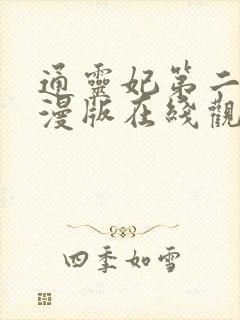 通靈妃第二
漫版在綫觀
四季如雪